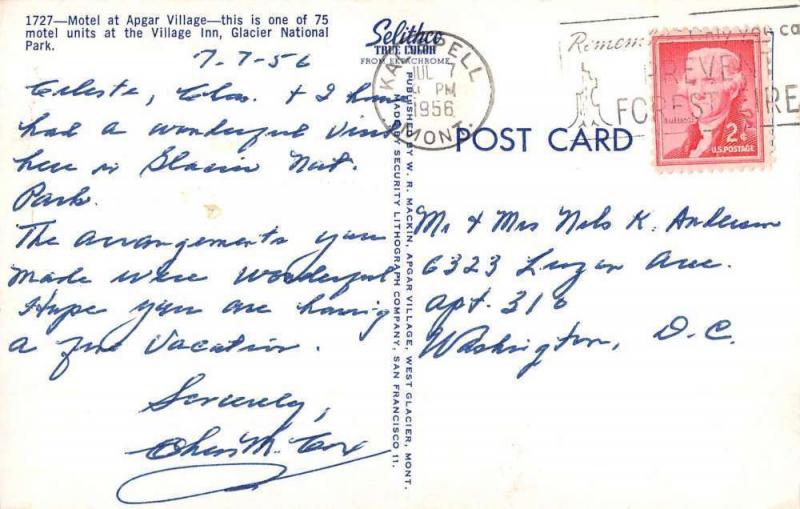 1727—Motel at Apgar Village—this is one of 75
motel units at the Village Inn, Glacier National
Park.
7-7-56
Celeste, Chas. & I have
had a wonderful visit
here in Glacier Nat.
Park.
The arrangements you
made were wonderful
Hope you are having
a fine vacation.
Sincerely,
Chas M. Cox
Selithco
TRUE COLOR
FROM EKTACHROME
PUBLISHED BY W. R. MACKIN, APGAR VILLAGE, WEST GLACIER, MONT.
MADE BY SECURITY LITHOGRAPH COMPANY, SAN FRANCISCO 11.
KALISPELL
JUL 7
PM
1956
MONT.
POST CARD
Remember only you ca
PREVENT
FOREST FIRE
2¢
U.S. POSTAGE
Mr & Mrs Nels K. Anderson
6323 Luzon Ave.
Apt. 310
Washington, D.C.